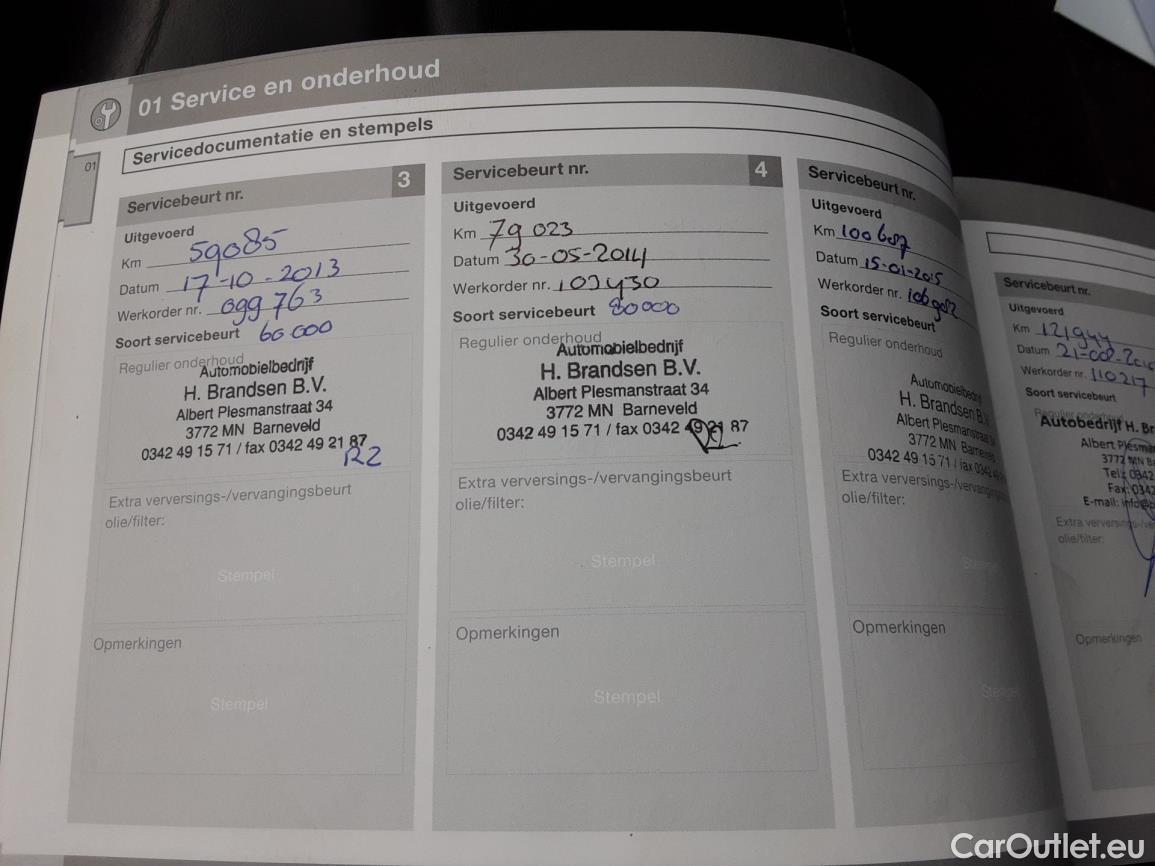 01 Service en onderhoud
Servicedocumentatie en stempels
01
Servicebeurt nr. 3
Uitgevoerd
Km 59085
Datum 17-10-2013
Werkorder nr. 099763
Soort servicebeurt 60.000
Regulier onderhoud
Automobielbedrijf
H. Brandsen B.V.
Albert Plesmanstraat 34
3772 MN Barneveld
0342 49 15 71 / fax 0342 49 21 87
Extra verversings-/vervangingsbeurt
olie/filter:
Stempel
Opmerkingen
Stempel
Servicebeurt nr. 4
Uitgevoerd
Km 79023
Datum 30-05-2014
Werkorder nr. 103430
Soort servicebeurt 80000
Regulier onderhoud
Automobielbedrijf
H. Brandsen B.V.
Albert Plesmanstraat 34
3772 MN Barneveld
0342 49 15 71 / fax 0342 49 21 87
Extra verversings-/vervangingsbeurt
olie/filter:
Stempel
Opmerkingen
Stempel
Servicebeurt nr.
Uitgevoerd
Km 100687
Datum 15-01-2015
Werkorder nr. 106902
Soort servicebeurt
Regulier onderhoud
Automobielbedrij
H. Brandsen B.
Albert Plesmanstraat
3772 MN Barneve
0342 49 15 71 / fax 0342
Extra verversings-/vervangingsbeu
olie/filter:
Opmerkingen
Servicebeurt nr.
Uitgevoerd
Km 121944
Datum 21-008-
Werkorder nr. 110217
Soort servicebeurt
Regulier onderhoud
Autobedrijf H. Br
Albert Plesma
3772 MN B
Tel: 0342
Fax: 0342
E-mail: info@
Extra verversings-/ver
olie/filter:
Opmerkingen
CarOutlet.eu